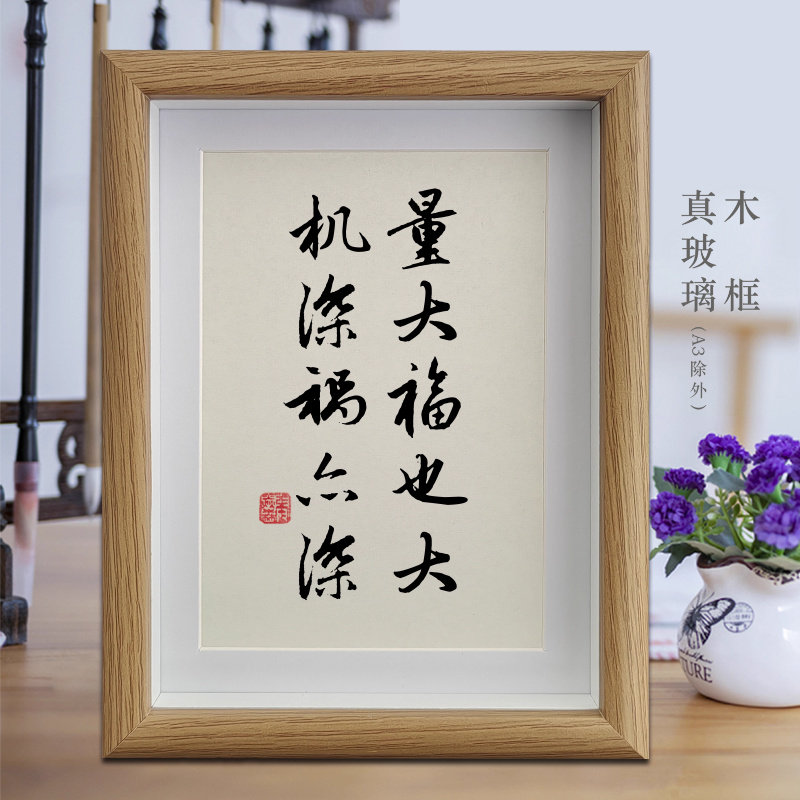 量大福也大
机深祸亦深
木框
真玻璃(A3除外)
TURE